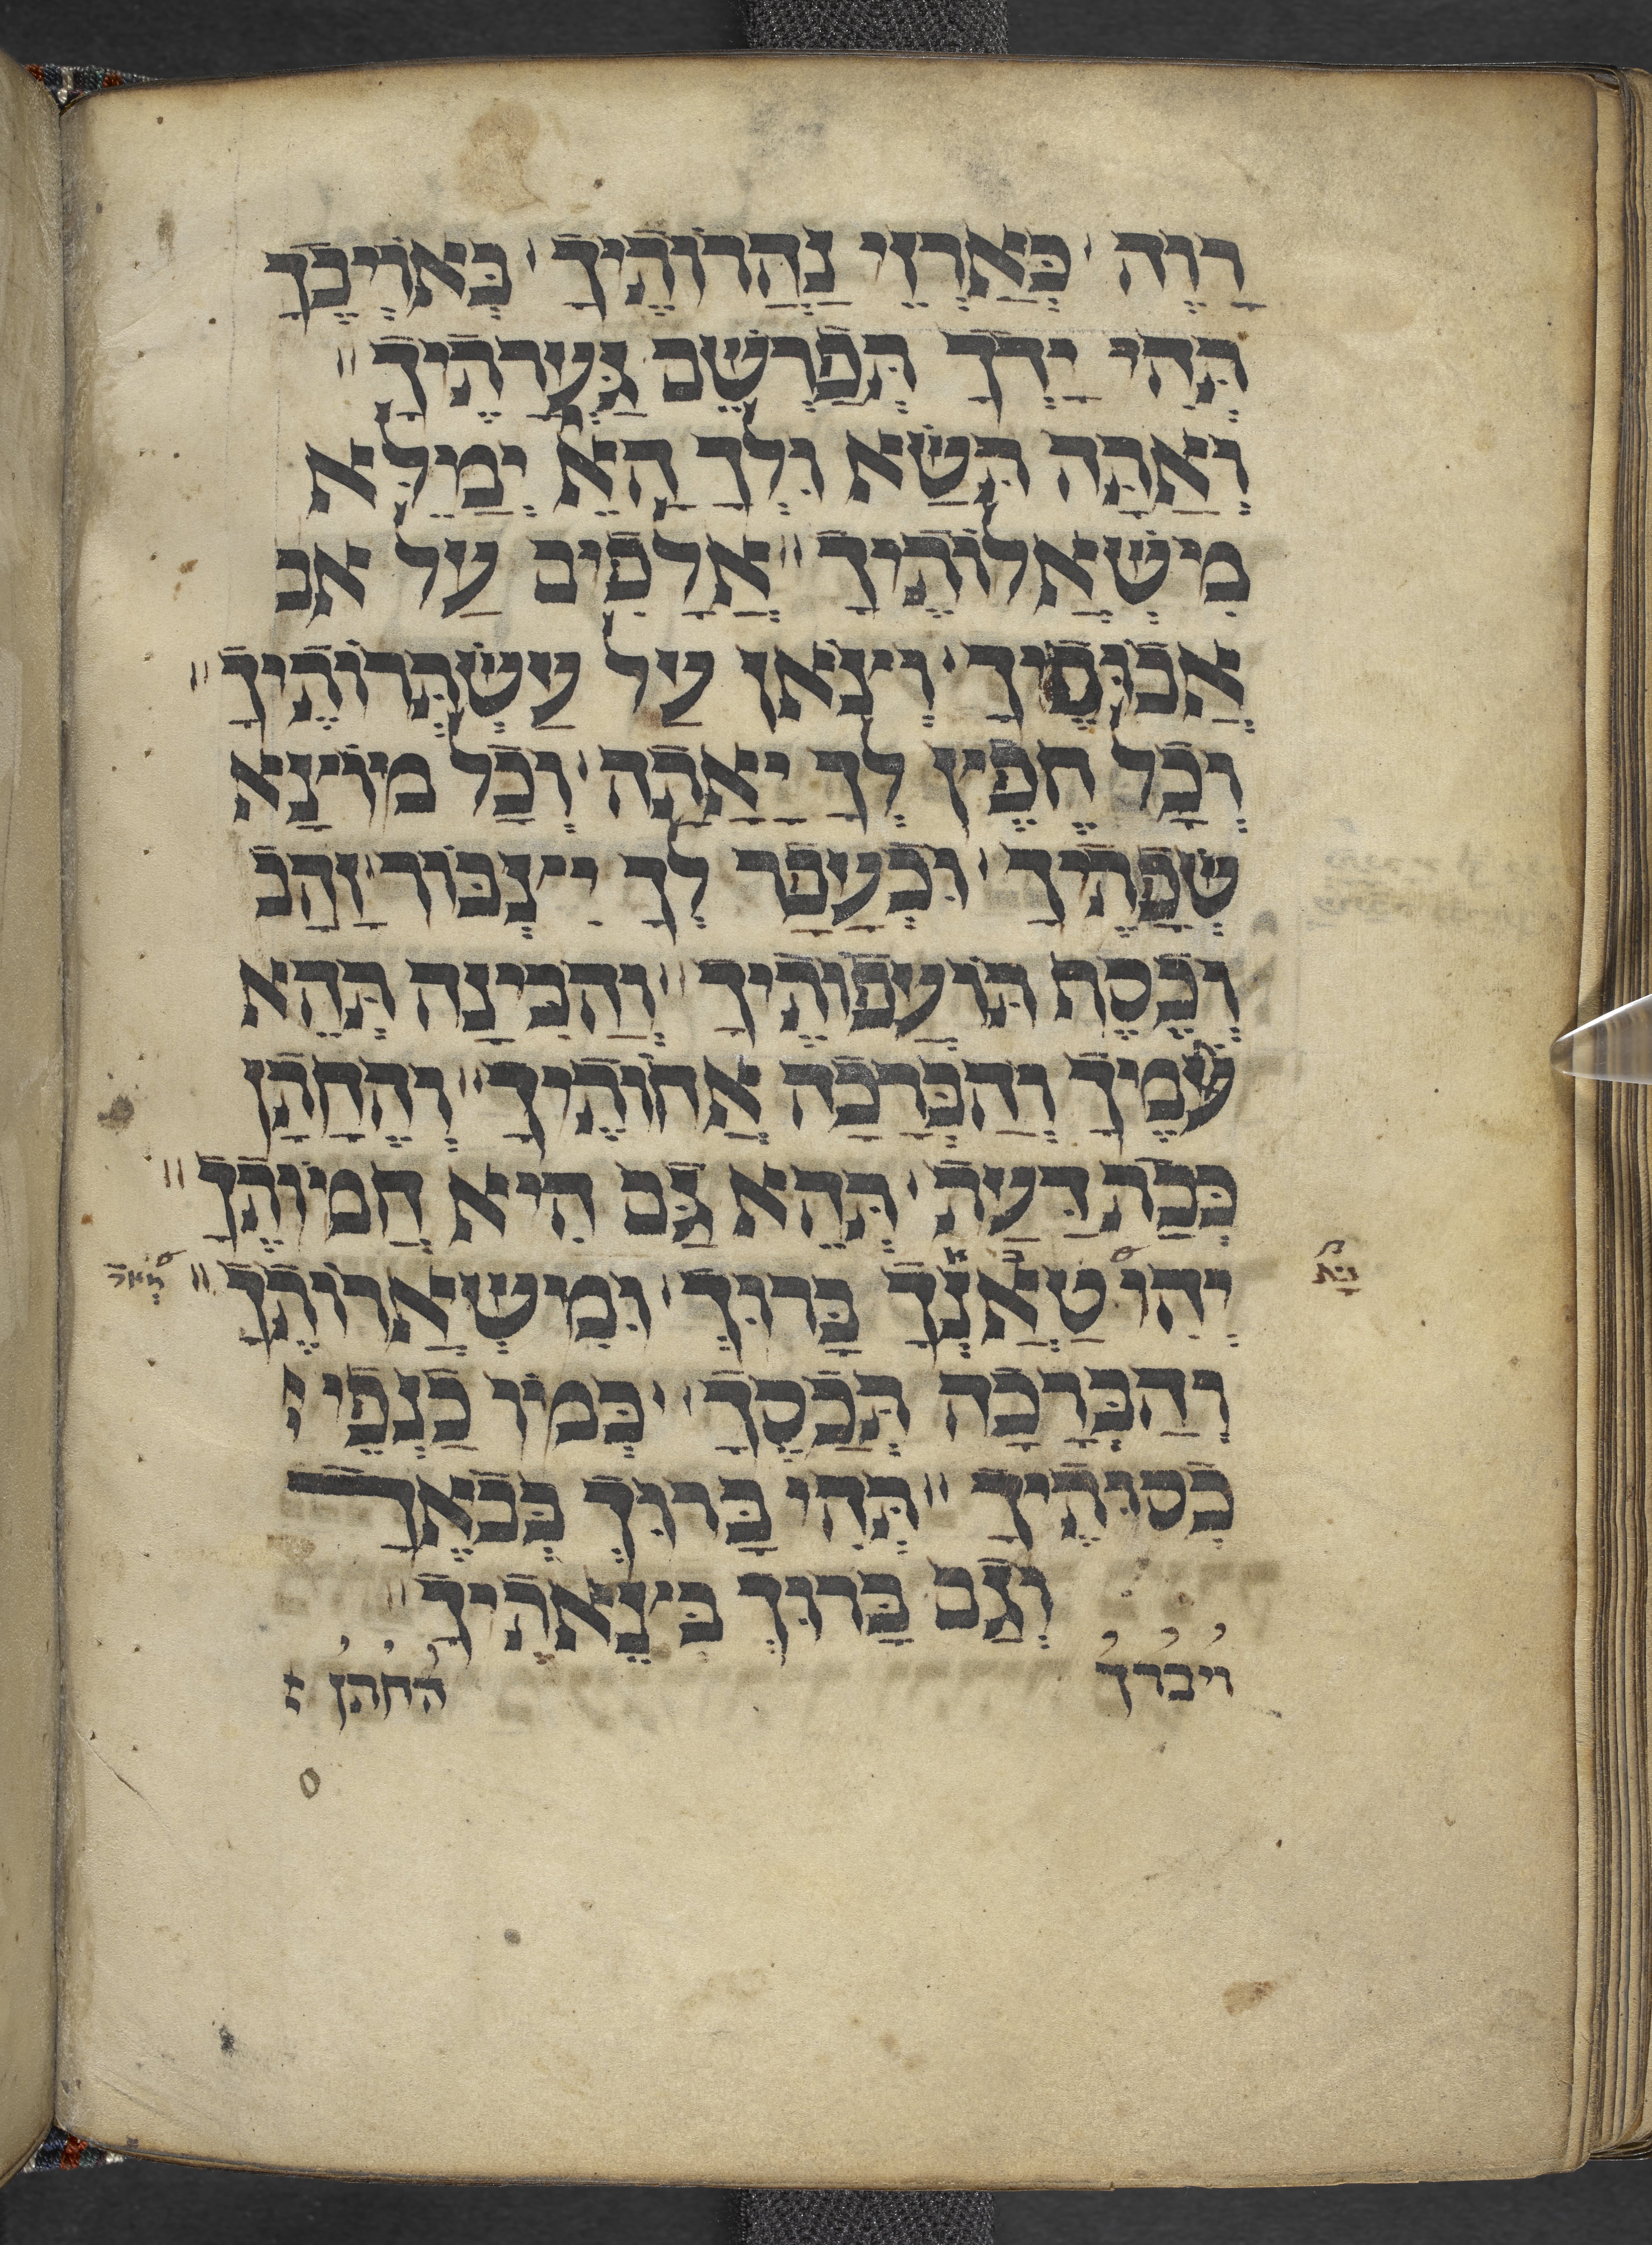 רָוֶה · כְּאַרְזֵי נַהֲרוֹתֶיךָ · בְּאוֹיְבֶךָ
תְּהִי יָדְךָ תְּפָרְשֵׂם
וְאַתָּה תִּשָּׂא וּלְךָ הָאֵל יְמַלֵּא
מִשְׁאֲלוֹתֶיךָ ״ אֲלָפִים עַל אב
אֲבוּסֶיךָ · וְצֹאן עַל עַשְׁתְּרוֹתֶיךָ ״
וְכָל חֵפֶץ לְךָ יֵאָתֶה · וְכָל מוֹצָא
שְׂפָתֶיךָ · וּכְעָפָר לְךָ יִצְבּוֹר זָהָב
וְכֶסֶף תּוֹעֲפוֹתֶיךָ ״ וְהַבִּינָה תְּהֵא
עִמֶּיךָ וְהַבְּרָכָה אֲחוֹתֶיךָ ״ וְהֶחָתָן
כְּבַת דַּעַת · תְּהֵא גַּם הִיא חֲמוֹתֶךָ ״
יְהִי טַנְאֲךָ בָּרוּךְ · וּמִשְׁאֲרוֹתֶךָ ״
וְהַבְּרָכָה תְּכַסֶּךָ · כְּמוֹ כַנְפֵי
כְסוּתֶיךָ ״ תְּהִי בָּרוּךְ בְּבֹאֶךָ
וְגַם בָּרוּךְ בְּצֵאתֶיךָ ״
ויברך החתן :